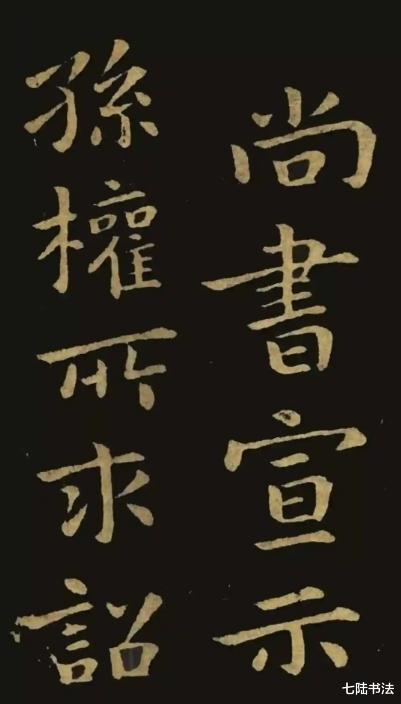 尚書宣示
孫權所求詔
七陆书法